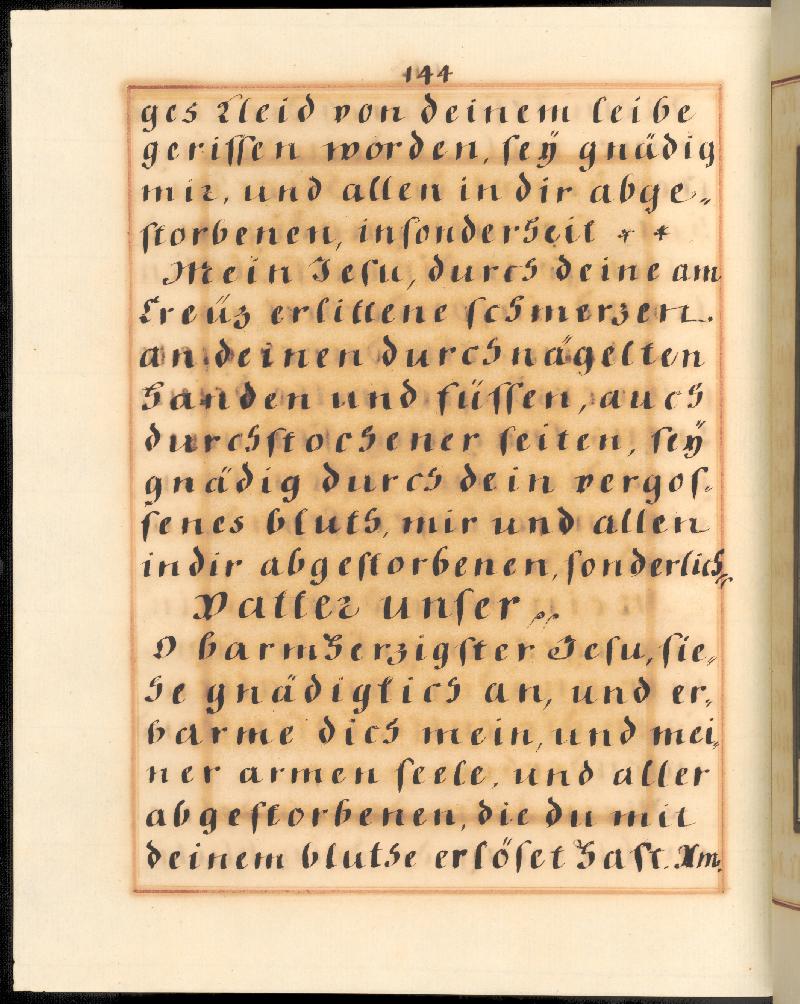 144
ges Kleid von deinem leibe
geriſſen worden, ſeÿ gnädig
mir, und allen in dir abge„
ſtorbenen, inſonderheit * *
Mein Jeſu, durch deine am
Creüz erlittene ſchmerzen.
an deinen durchnägelten
handen und füſſen, auch
durchſtochener ſeiten, ſeÿ
gnädig durch dein vergoſ„
ſenes bluth, mir und allen
in dir abgeſtorbenen, ſonderlich„
Vatter unſer„
O barmherzigſter Jeſu, ſie„
he gnädiglich an, und er„
barme dich mein, und mei„
ner armen ſeele, und aller
abgeſtorbenen, die du mit
deinem bluthe erlöſet haſt. Am.